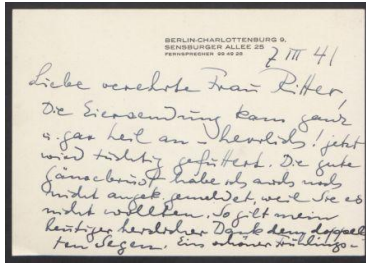 BERLIN-CHARLOTTENBURG 9,
SENSBURGER ALLEE 25
FERNSPRECHER 99 48 25
7 III 41
Liebe verehrte Frau Ritter,
Die Eiersendung kam ganz
u. gar heil an – herrlich! jetzt
wird tüchtig gefuttert. Die gute
Gänsebrust habe ich auch noch
nicht gemeldet, weil Sie es
nicht wollten. So gilt mein
heutiger herzlicher Dank dem doppel-
ten Segen. Ein schöner Frühlings-